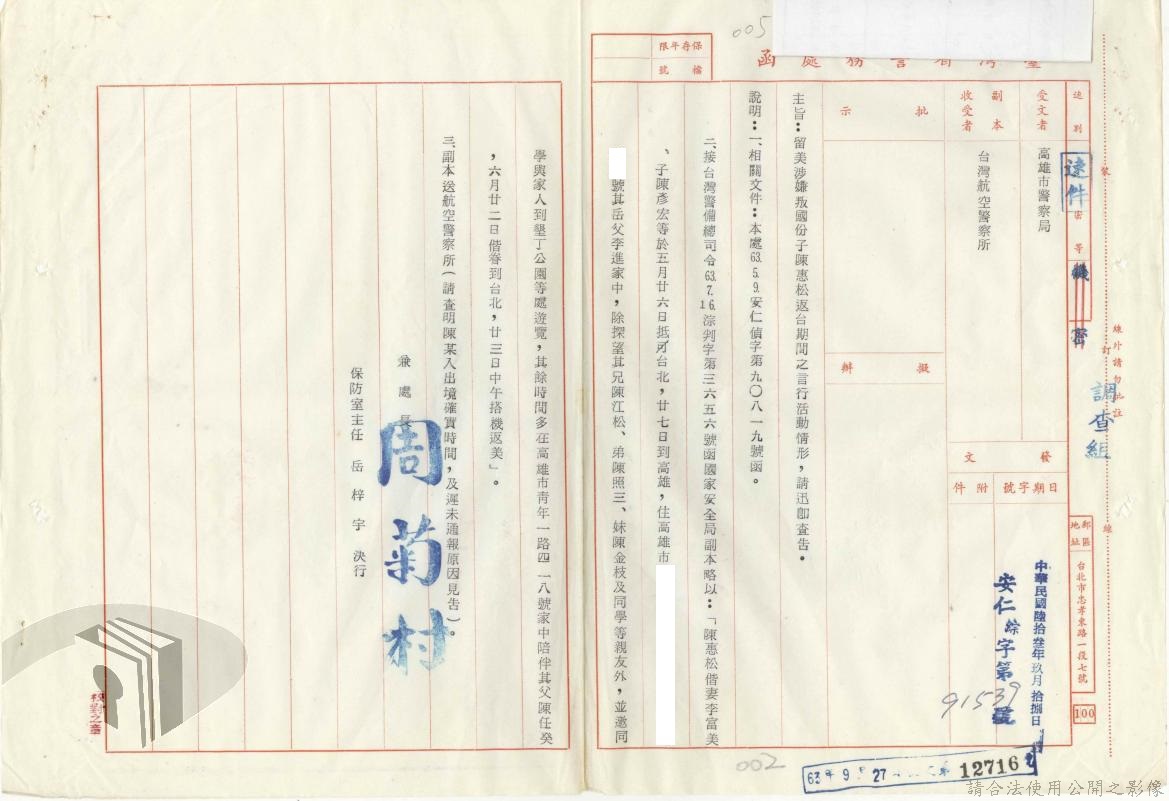 005
臺灣省警務處函
保存年限
檔號
速別
速件
密等
機密
受文者
高雄市警察局
副本收受者
台灣航空警察所
批示
擬辦
發文
日期字號
附件
中華民國陸拾叁年玖月拾捌日
安仁綜字第91539號
郵區
地址
台北市忠孝東路一段七號
100
裝
訂
線
線外請勿批註
調查組
主旨：留美涉嫌叛國份子陳惠松返台期間之言行活動情形，請迅即查告。
說明：一、相關文件：本處63.5.9.安仁偵字第九〇八一九號函。
二、接台灣警備總司令63.7.16.淙判字第三六五六號函國家安全局副本略以：「陳惠松偕妻李富美
、子陳彥宏等於五月廿六日抵台北，廿七日到高雄，住高雄市
號其岳父李進家中，除探望其兄陳江松、弟陳照三、妹陳金枝及同學等親友外，並邀同
學與家人到墾丁公園等處遊覽，其餘時間多在高雄市青年一路四一八號家中陪伴其父陳任癸
，六月廿二日偕眷到台北，廿三日中午搭機返美」。
三、副本送航空警察所（請查明陳某入出境確實時間，及遲未通報原因見告）。
兼處長
周菊村
保防室主任 岳梓宇 決行
校對之章
002
63年9月27
12716
請合法使用公開之影像